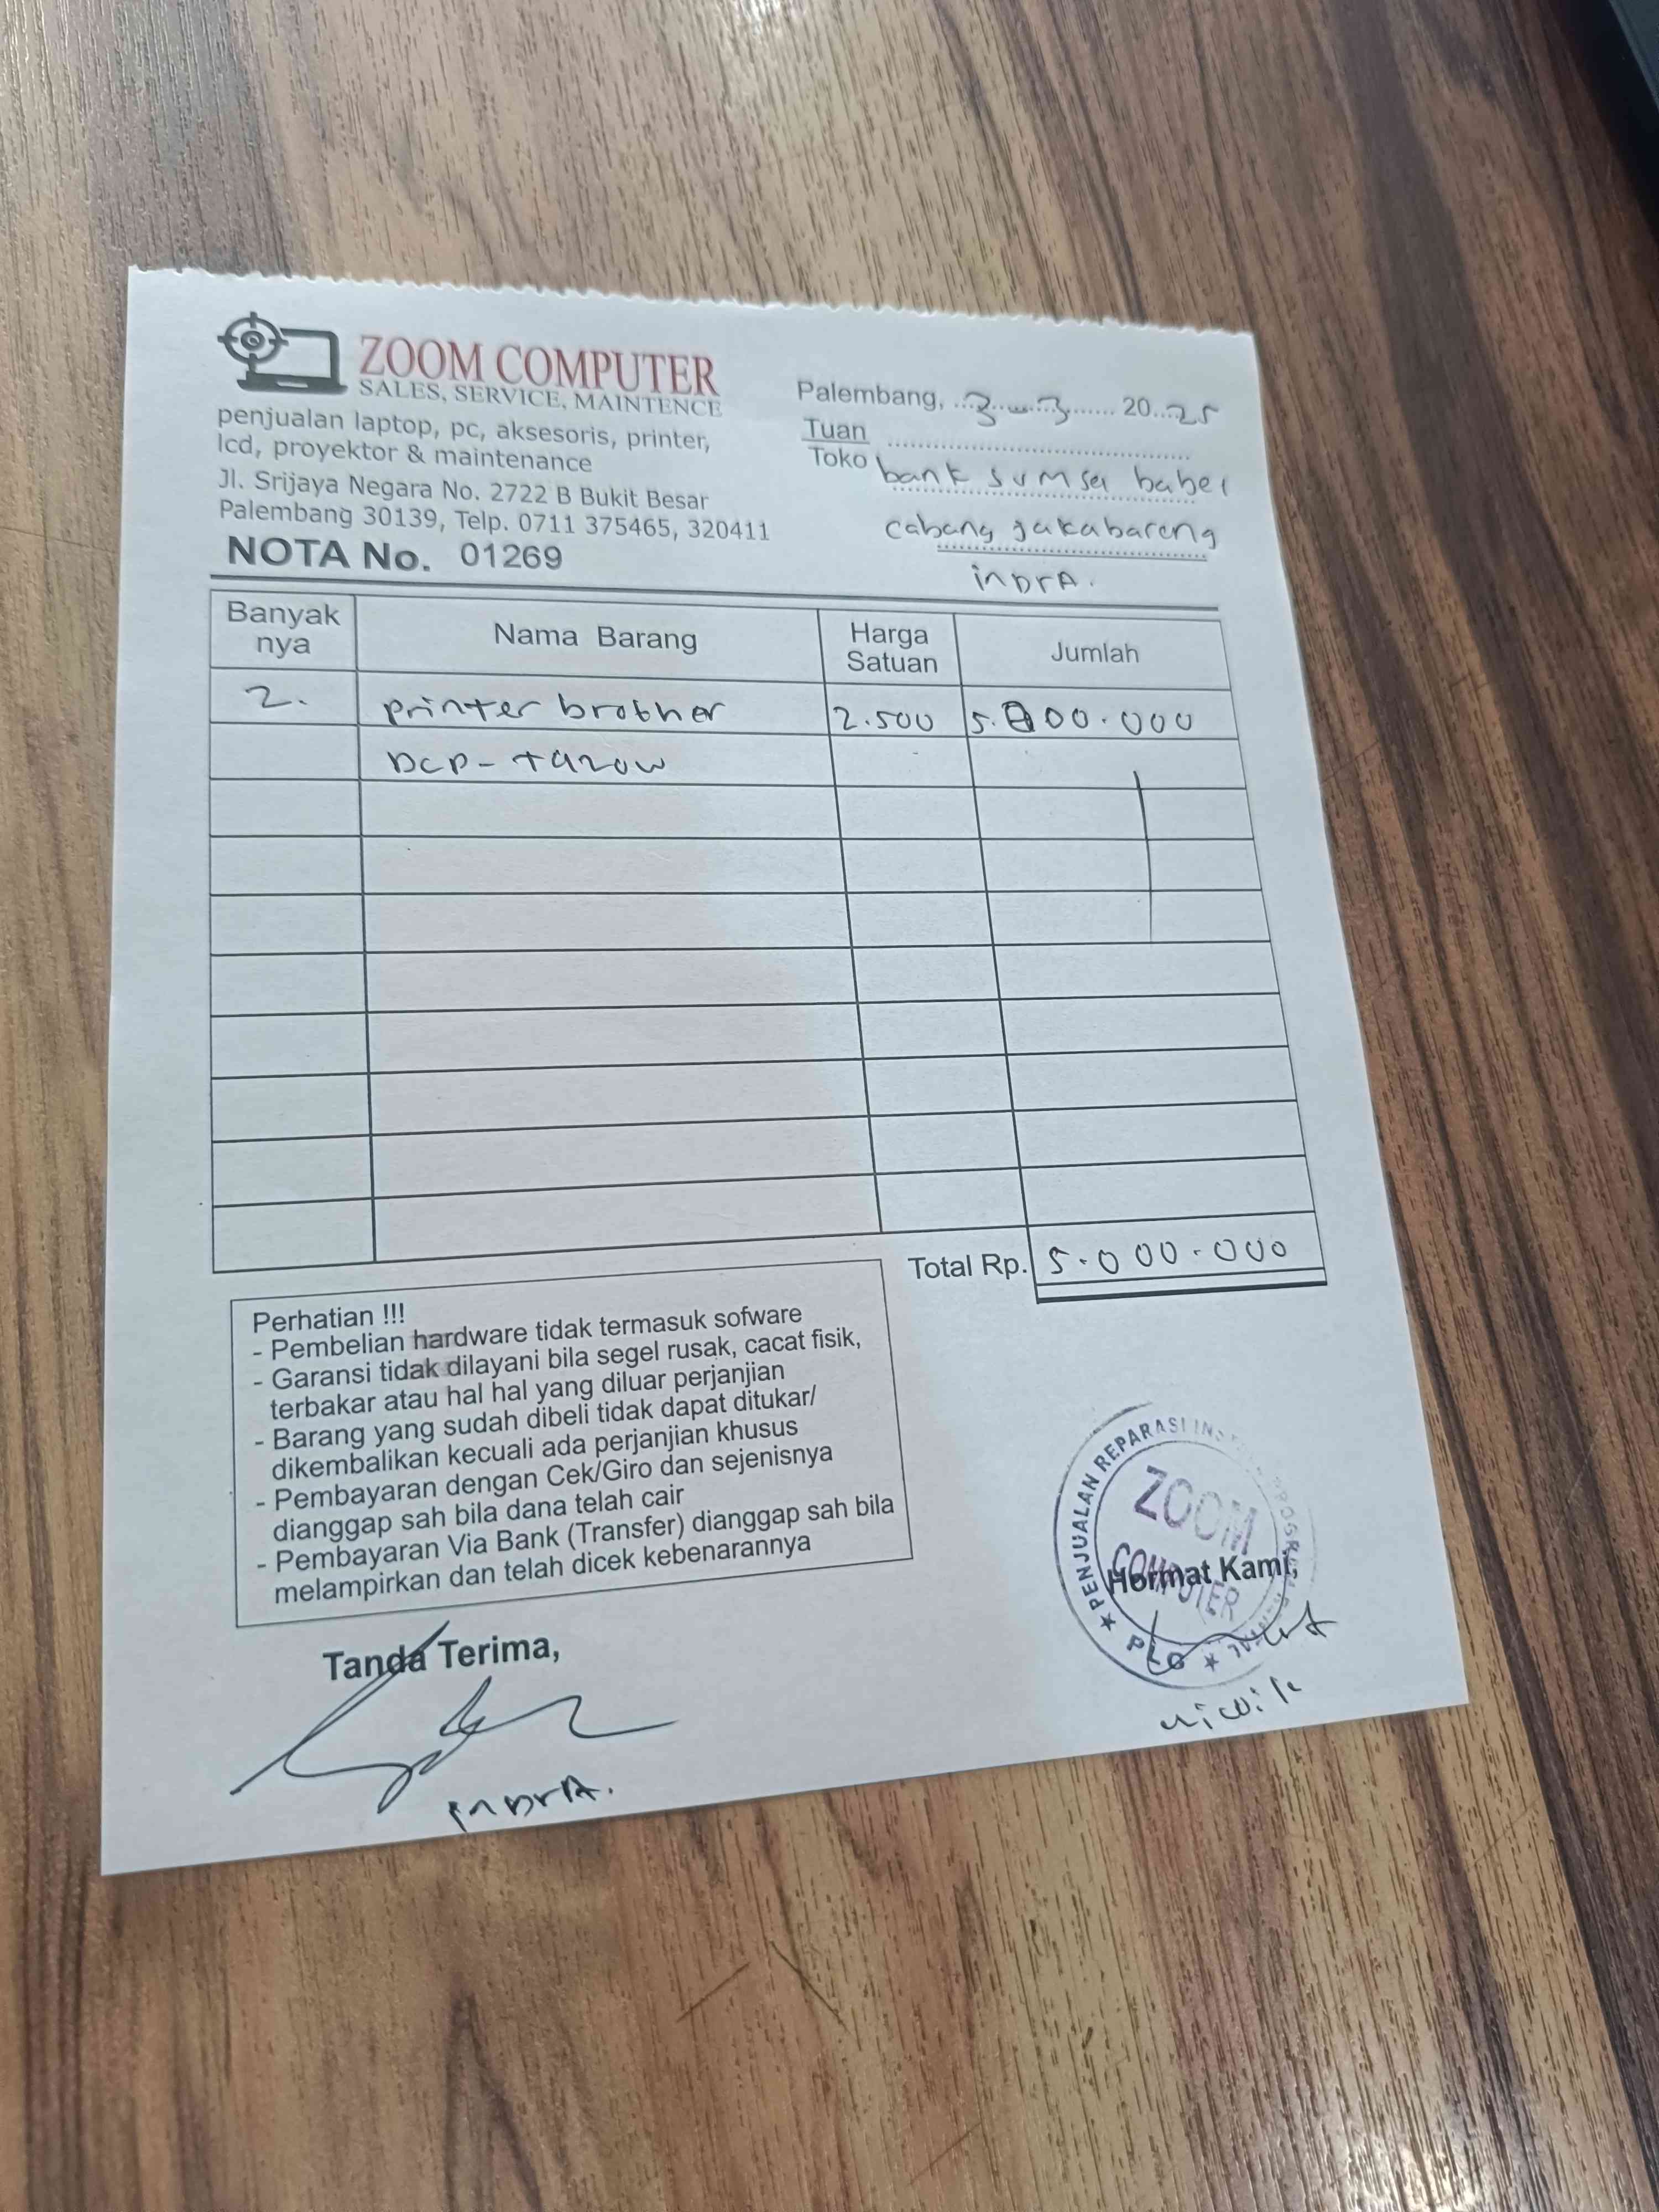 ZOOM COMPUTER
SALES, SERVICE, MAINTENCE
penjualan laptop, pc, aksesoris, printer,
lcd, proyektor & maintenance
Jl. Srijaya Negara No. 2722 B Bukit Besar
Palembang 30139, Telp. 0711 375465, 320411
NOTA No. 01269
Palembang, 3 - 3 2025
Tuan
Toko bank sumsel babel
cabang jakabareng
inDrA.
Banyak nya Nama Barang Harga Satuan Jumlah
2. printer brother 2.500 5.000.000
DCP-T420W
Total Rp. 5.000.000
Perhatian !!!
- Pembelian hardware tidak termasuk sofware
- Garansi tidak dilayani bila segel rusak, cacat fisik,
terbakar atau hal hal yang diluar perjanjian
- Barang yang sudah dibeli tidak dapat ditukar/
dikembalikan kecuali ada perjanjian khusus
- Pembayaran dengan Cek/Giro dan sejenisnya
dianggap sah bila dana telah cair
- Pembayaran Via Bank (Transfer) dianggap sah bila
melampirkan dan telah dicek kebenarannya
Tanda Terima,
inDrA.
Hormat Kami,
PENJUALAN REPARASI
ZOOM
COMPUTER
PLG